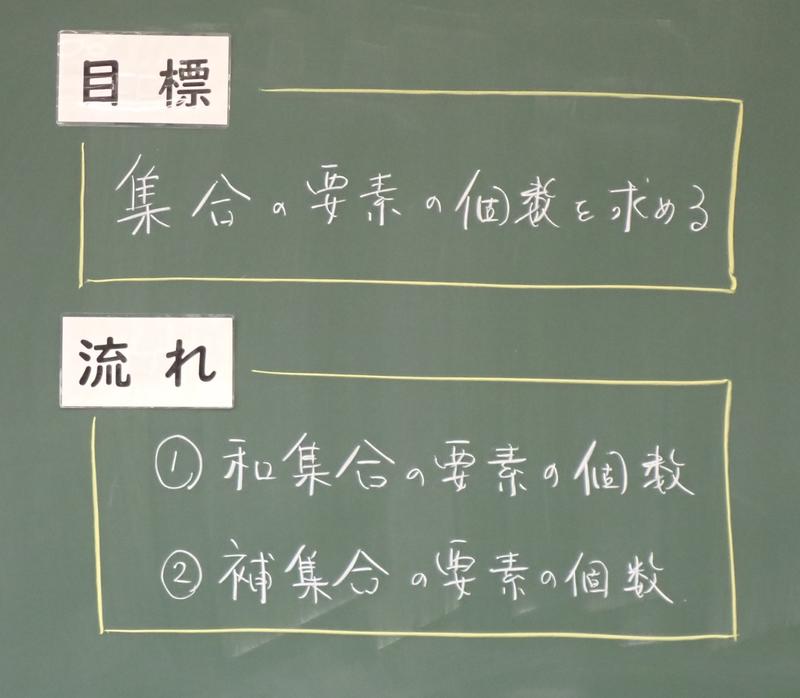 目標
集合の要素の個数を求める
流れ
① 和集合の要素の個数
② 補集合の要素の個数